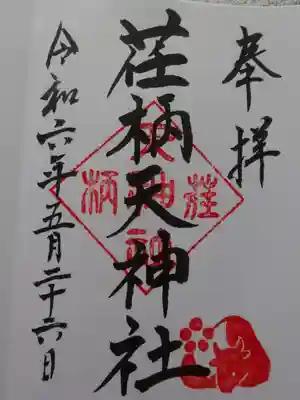 奉拝
荏柄天神社
令和六年五月二十六日
荏柄天神社